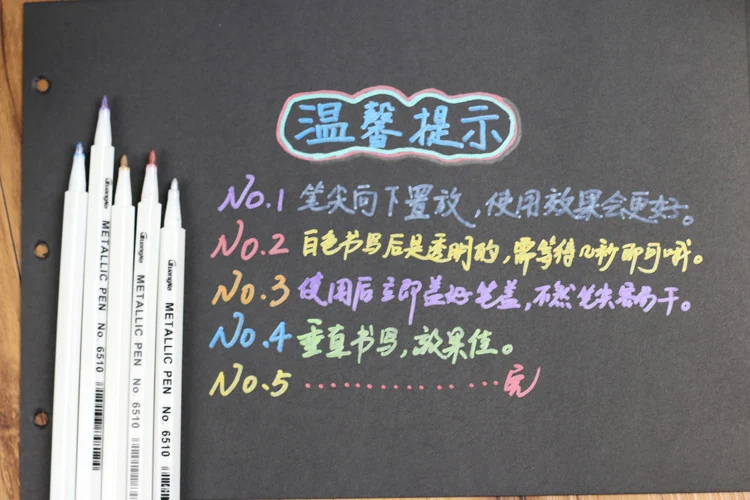 温馨提示
No.1 笔尖向下置放,使用效果会更好。
No.2 白色书写后是透明的,需等待几秒即可哦。
No.3 使用后立即盖好笔盖,不然笔尖易而干。
No.4 垂直书写,效果佳。
No.5 ················完
METALLIC PEN No 6510
METALLIC PEN No 6510
METALLIC PEN No 6510